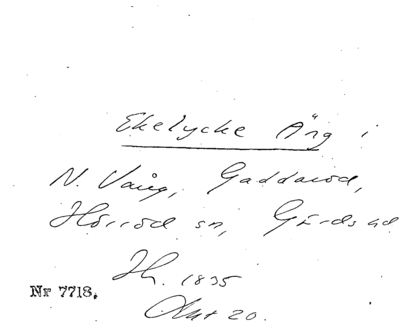 Ekelycke Äng i
N. Vång, Gaddaröd,
Hörröd sn, Gärds hd
Jh. 1835
Akt 20.
Nr 7718.